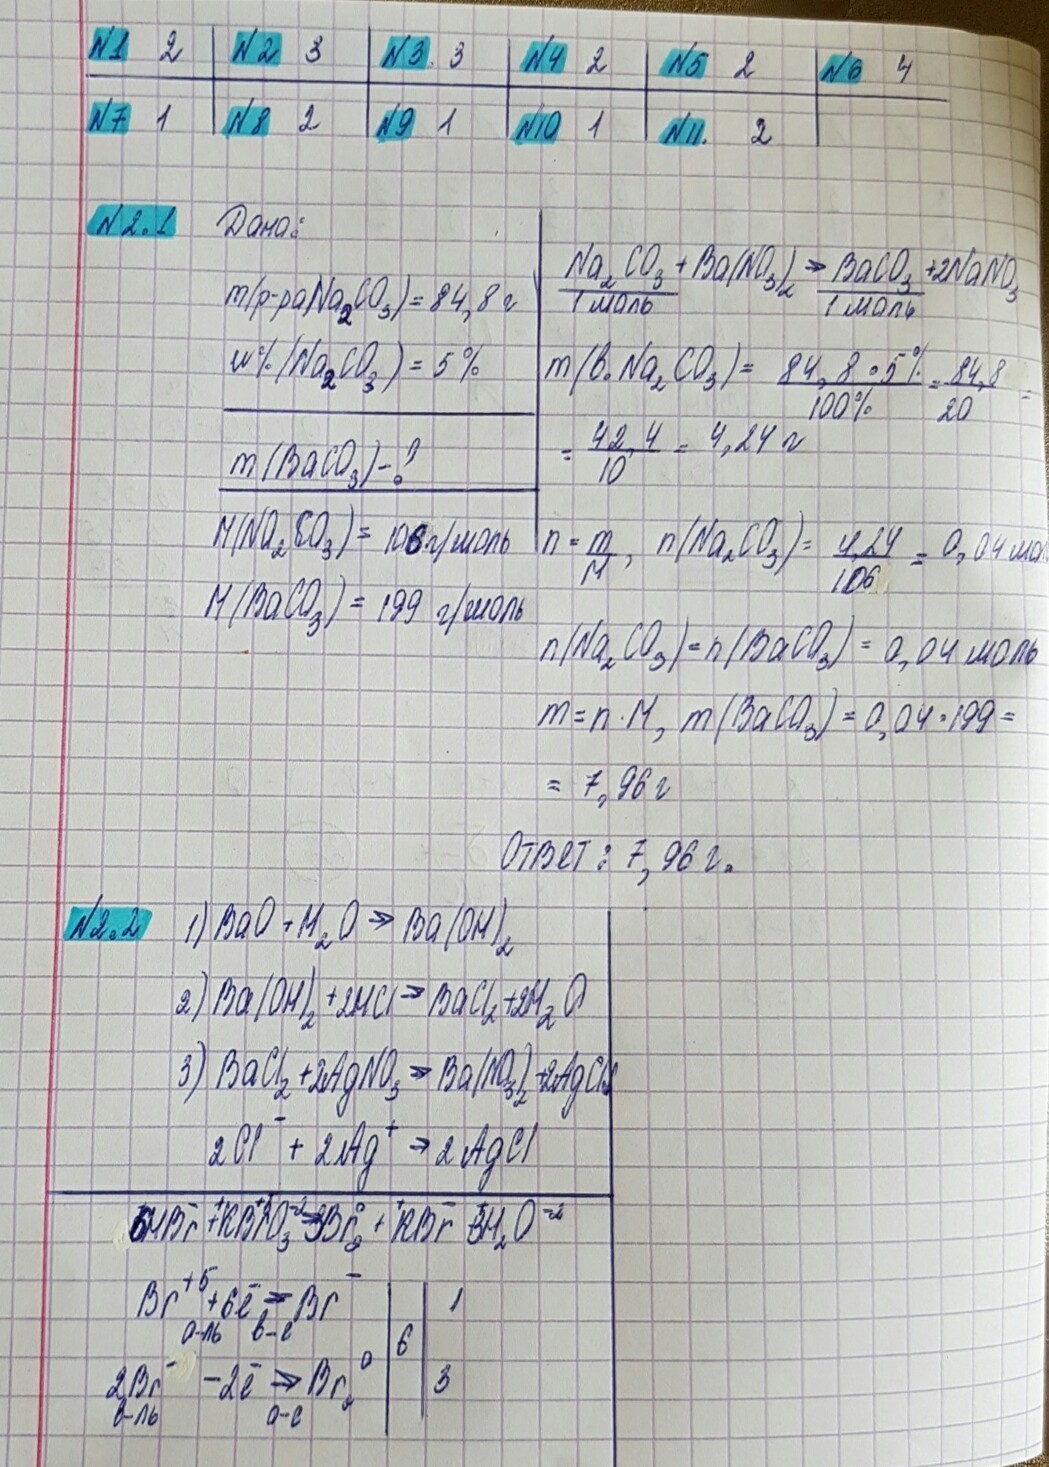 N1 2 N2 3 N3. 3 N4 2 N5 2 N6 4
N7 1 N8 2 N9 1 N10 1 N11. 2
N2.1 Дано:
m(р-раNa₂CO₃)=84,8 г
w%(Na₂CO₃)=5%
m(BaCO₃)-?
M(Na₂CO₃)=106г/моль
M(BaCO₃)=199 г/моль
Na₂CO₃+Ba(NO₃)₂→BaCO₃+2NaNO₃
1моль 1моль
m(в.Na₂CO₃)= 84,8•5%/100% = 84,8/20 =
= 42,4/10 = 4,24 г
n=m/M, n(Na₂CO₃)= 4,24/106 = 0,04 мол
n(Na₂CO₃)=n(BaCO₃)=0,04 моль
m=n·M, m(BaCO₃)=0,04•199=
= 7,96 г
Ответ: 7,96 г.
N2.2 1) BaO+H₂O→Ba(OH)₂
2) Ba(OH)₂+2HCl→BaCl₂+2H₂O
3) BaCl₂+2AgNO₃→Ba(NO₃)₂+2AgCl↓
2Cl⁻+2Ag⁺→2AgCl
6H⁺Br⁻+K⁺Br⁺⁵O₃⁻²→3Br₂⁰+K⁺Br⁻+3H₂⁺O⁻²
Br⁺⁵+6e⁻→Br⁻ 1
о-ль в-е
6
2Br⁻-2e⁻→Br₂⁰ 3
в-ль о-е